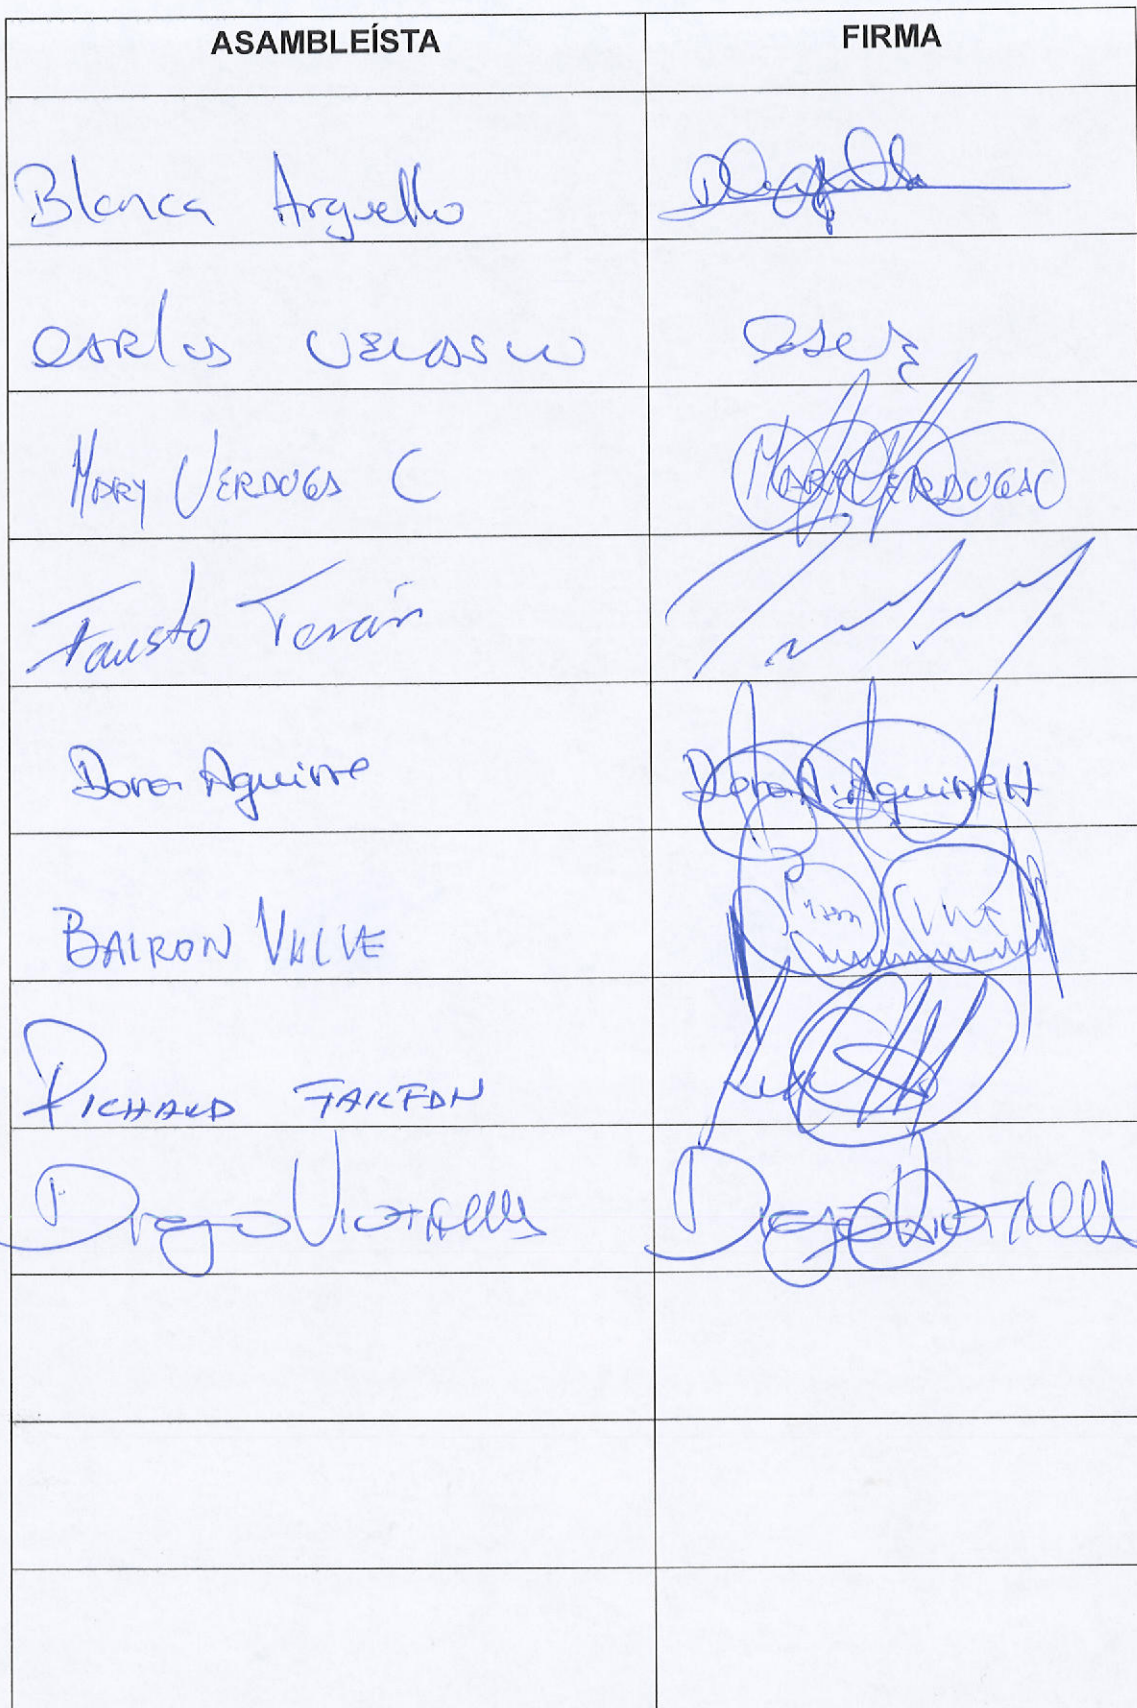 ASAMBLEÍSTA FIRMA
Blanca Arguello
CARLOS VELASCO
MARY VERDUGO C MARY VERDUGO C
Fausto Terán
Dora Aguirre Dora A. Aguirre H
BAIRON VALLE
RICHARD FARFÁN
Diego Vintimilla